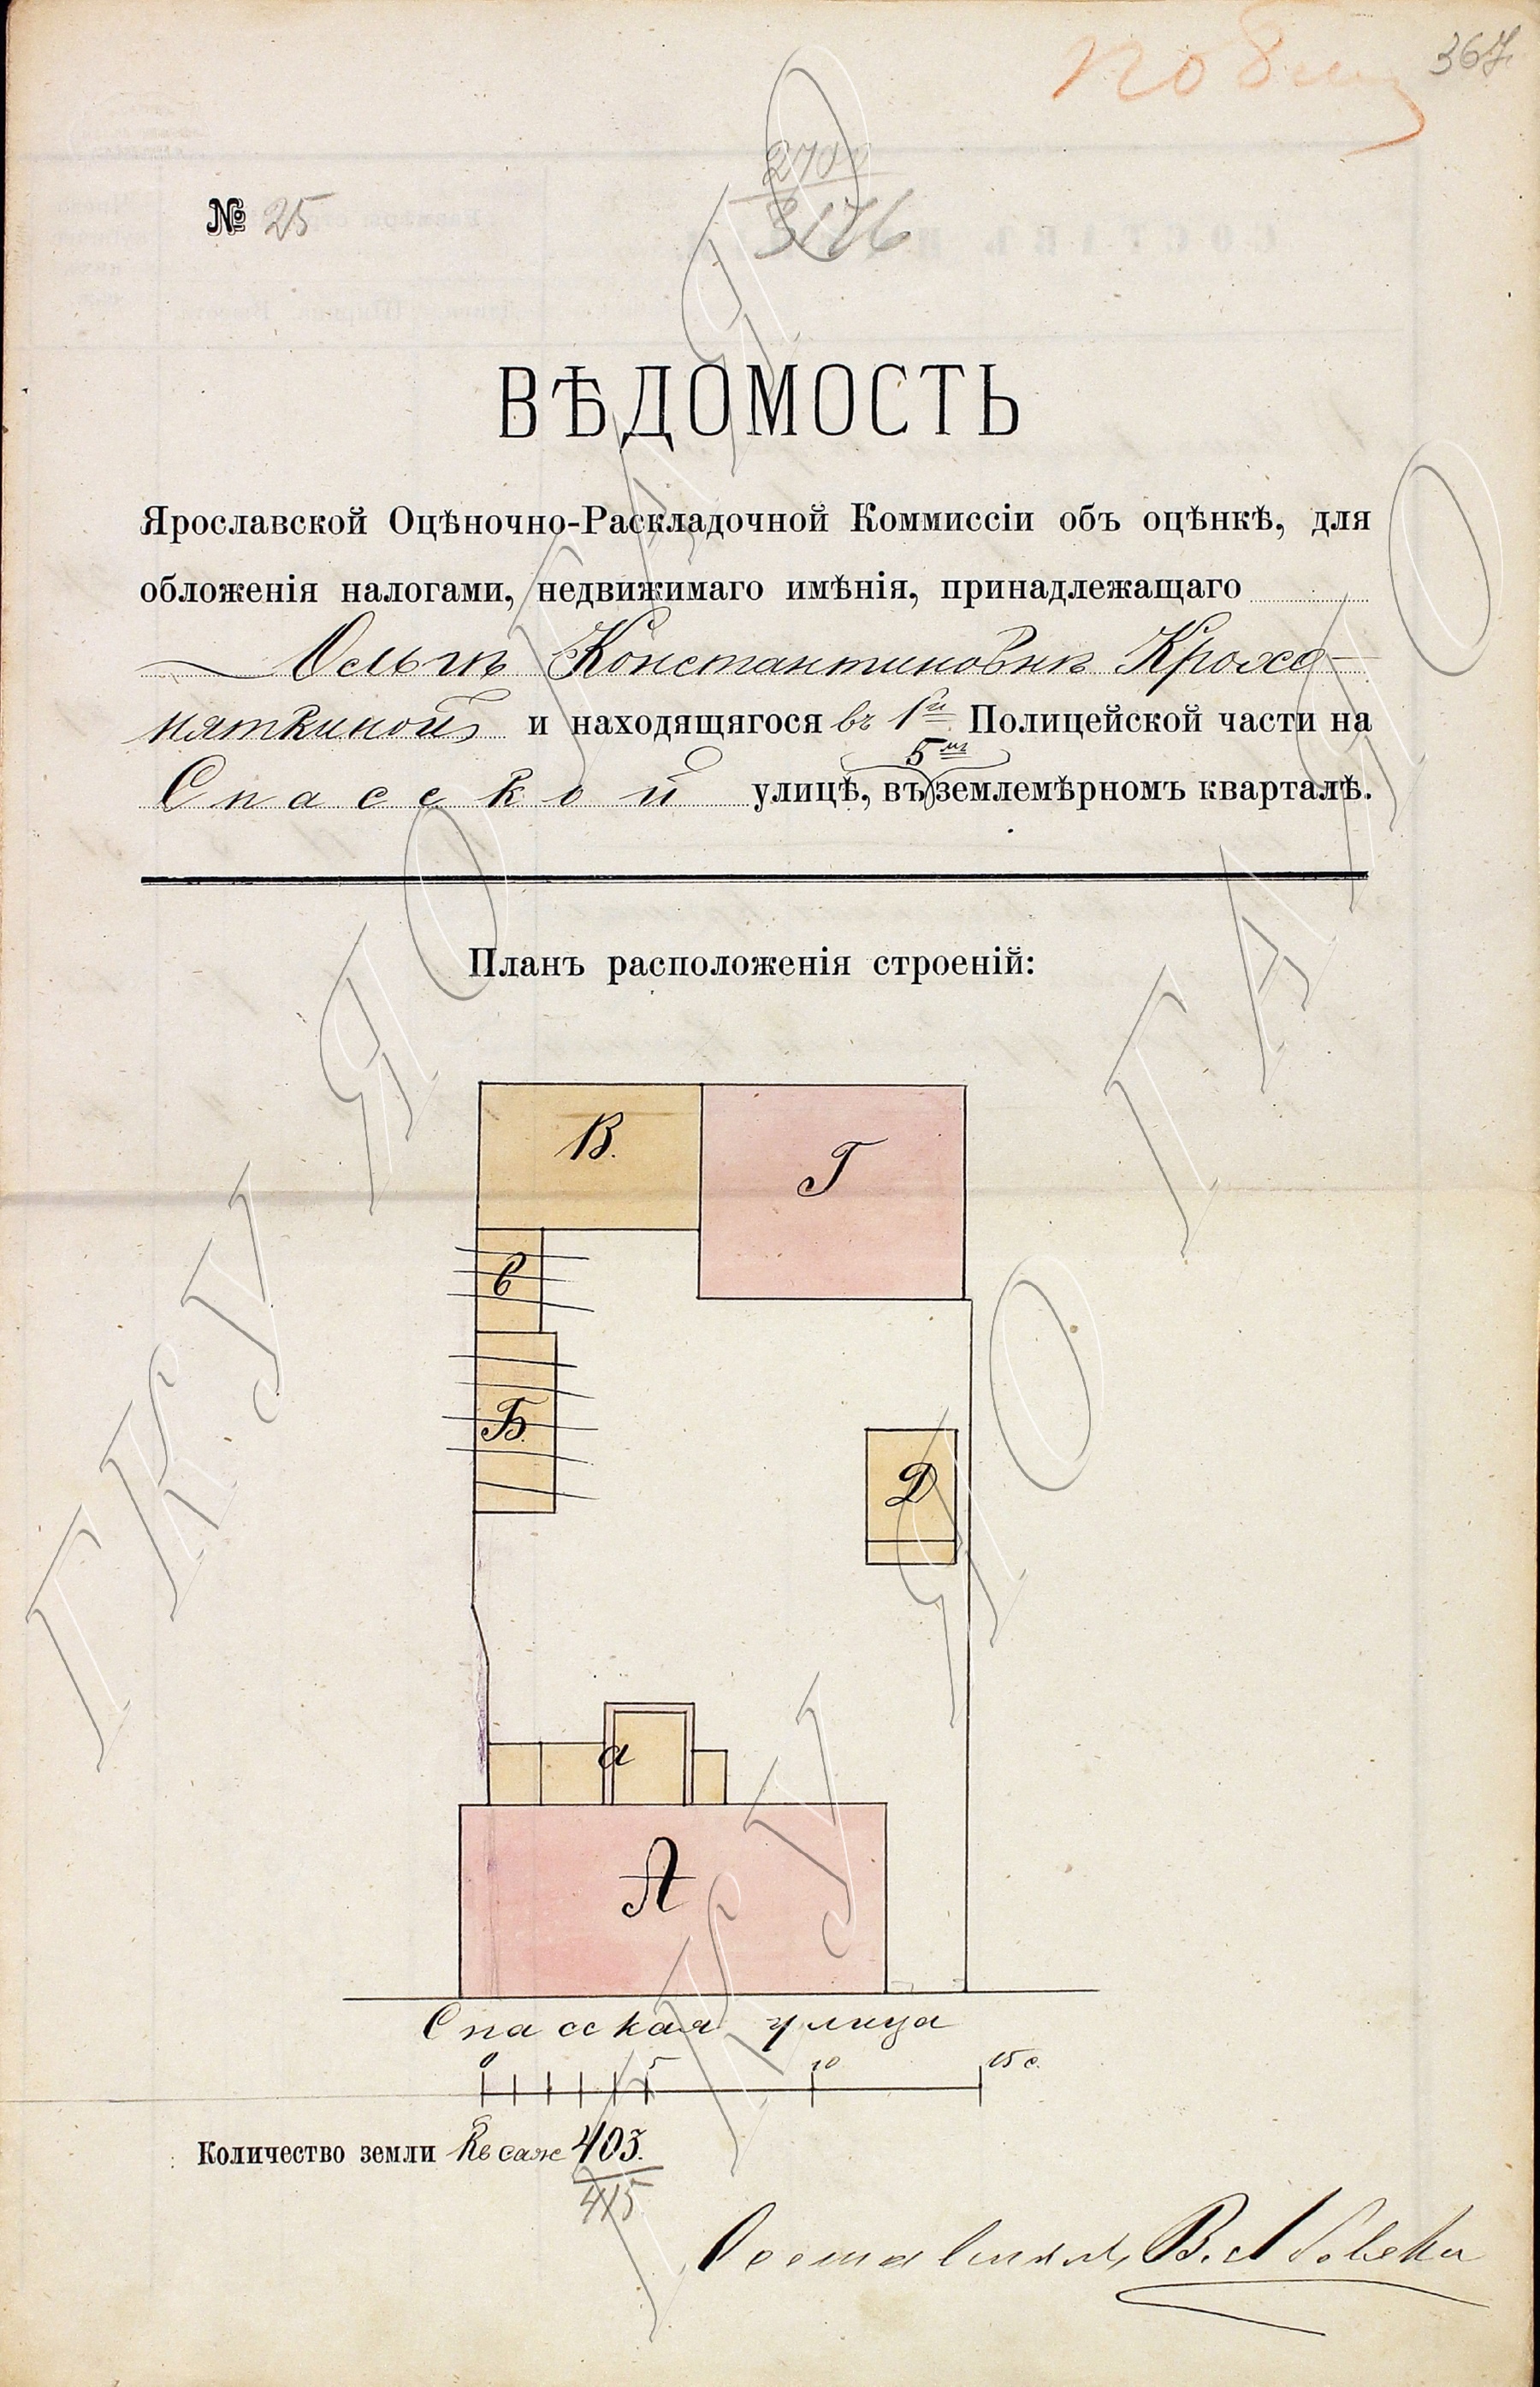 367.
№ 25
3176
ВѢДОМОСТЬ
Ярославской Оцѣночно-Раскладочной Коммиссіи объ оцѣнкѣ, для
обложенія налогами, недвижимаго имѣнія, принадлежащаго
Ольгѣ Константиновнѣ Крохо-
няткиной и находящягося въ 1й Полицейской части на
5мъ
Спасской улицѣ, въ землемѣрномъ кварталѣ.
Планъ расположенія строеній:
В. Г
С
Б.
Д
а
А
Спасская улица
0 5 10 15 с.
Количество земли Кв саж 403.
415
Составилъ В.
ГКУ ЯО ГАЯО
ГКУ ЯО ГАЯО